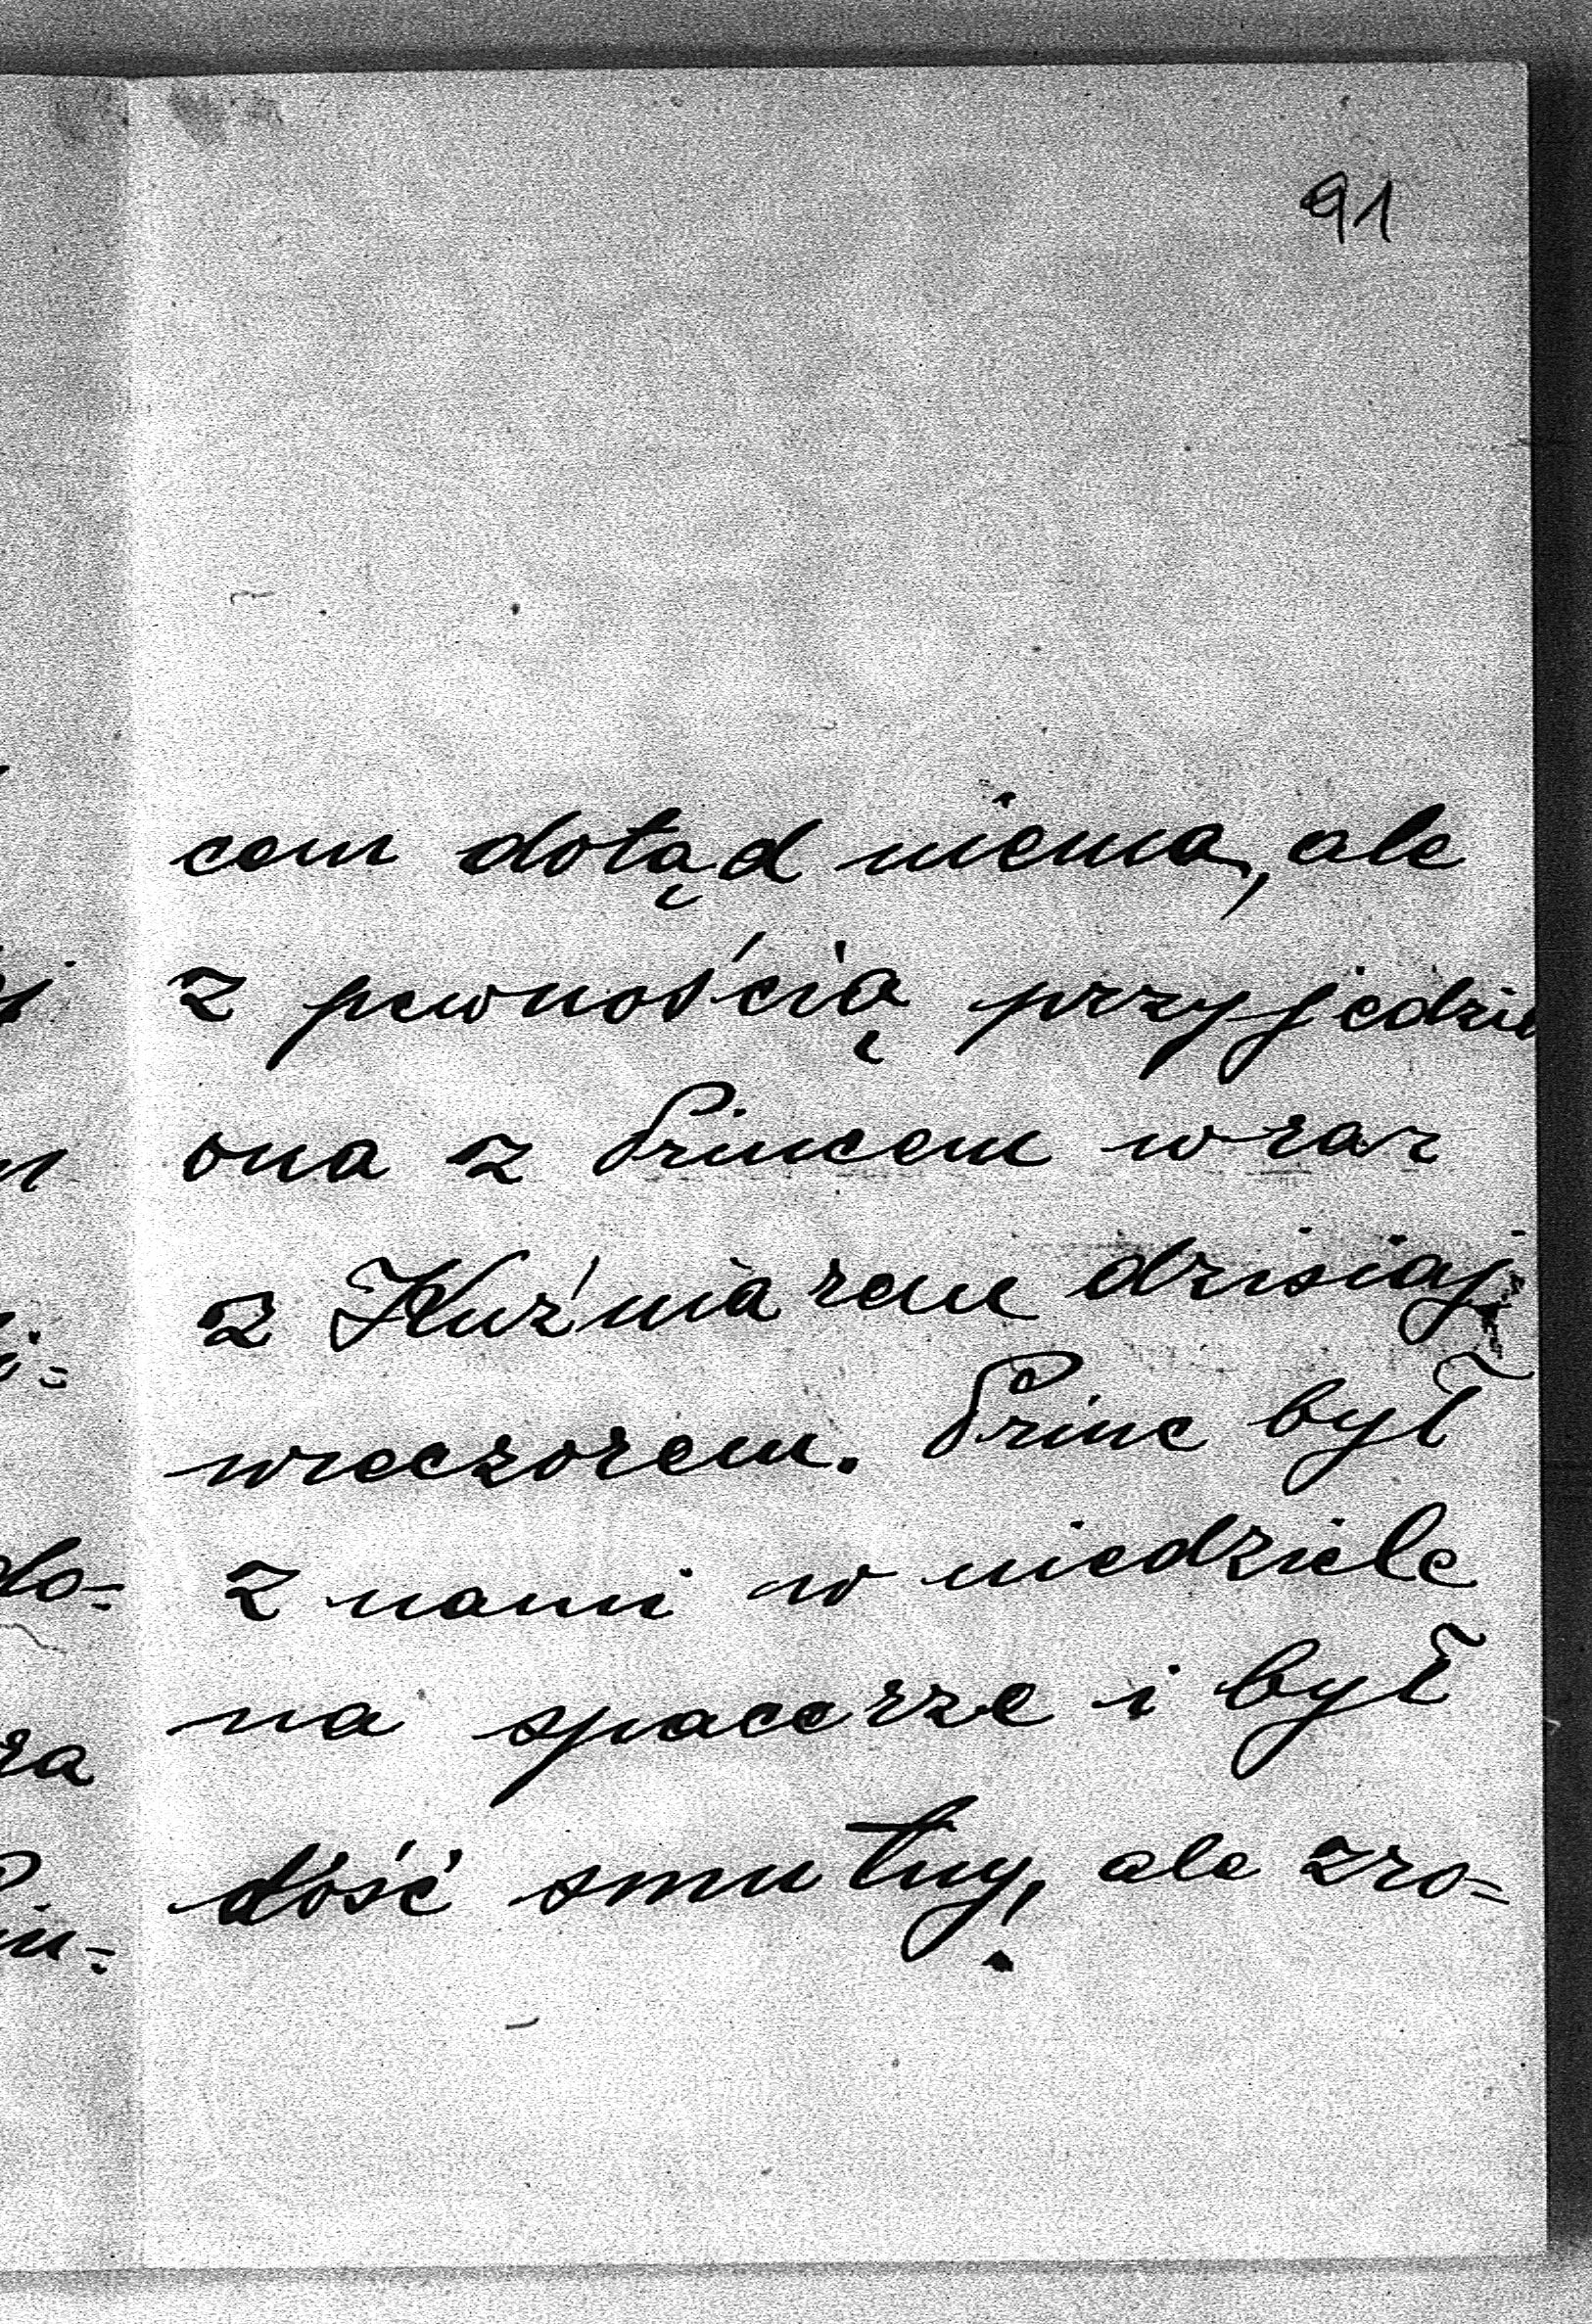 91
cem dotąd niema, ale
z pewnością przyjedzie
ona z Princem wraz
z Kuźniarem dzisiaj
wieczorem. Princ był
z nami w niedziele
na spacerze i był
dość smutny, ale zro=